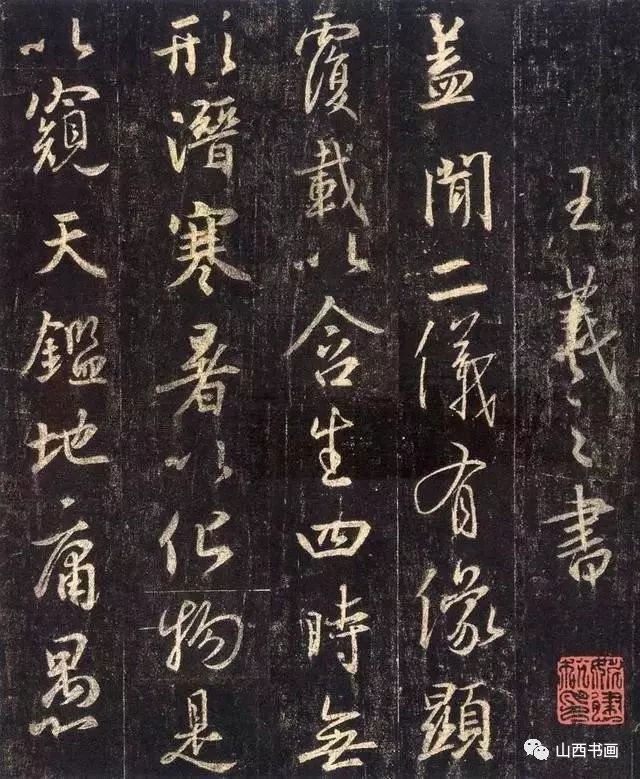 王羲之書
蓋聞二儀有像顯
覆載以含生四時無
形潛寒暑以化物是
以窺天鑑地庸愚
山西书画